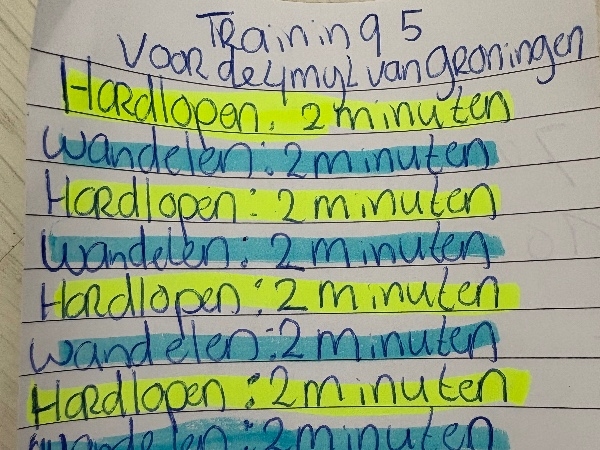 Training 5
Voor de 4myl van groningen
Hardlopen: 2 minuten
Wandelen: 2 minuten
Hardlopen: 2 minuten
Wandelen: 2 minuten
Hardlopen: 2 minuten
Wandelen: 2 minuten
Hardlopen: 2 minuten
Wandelen: 2 minuten